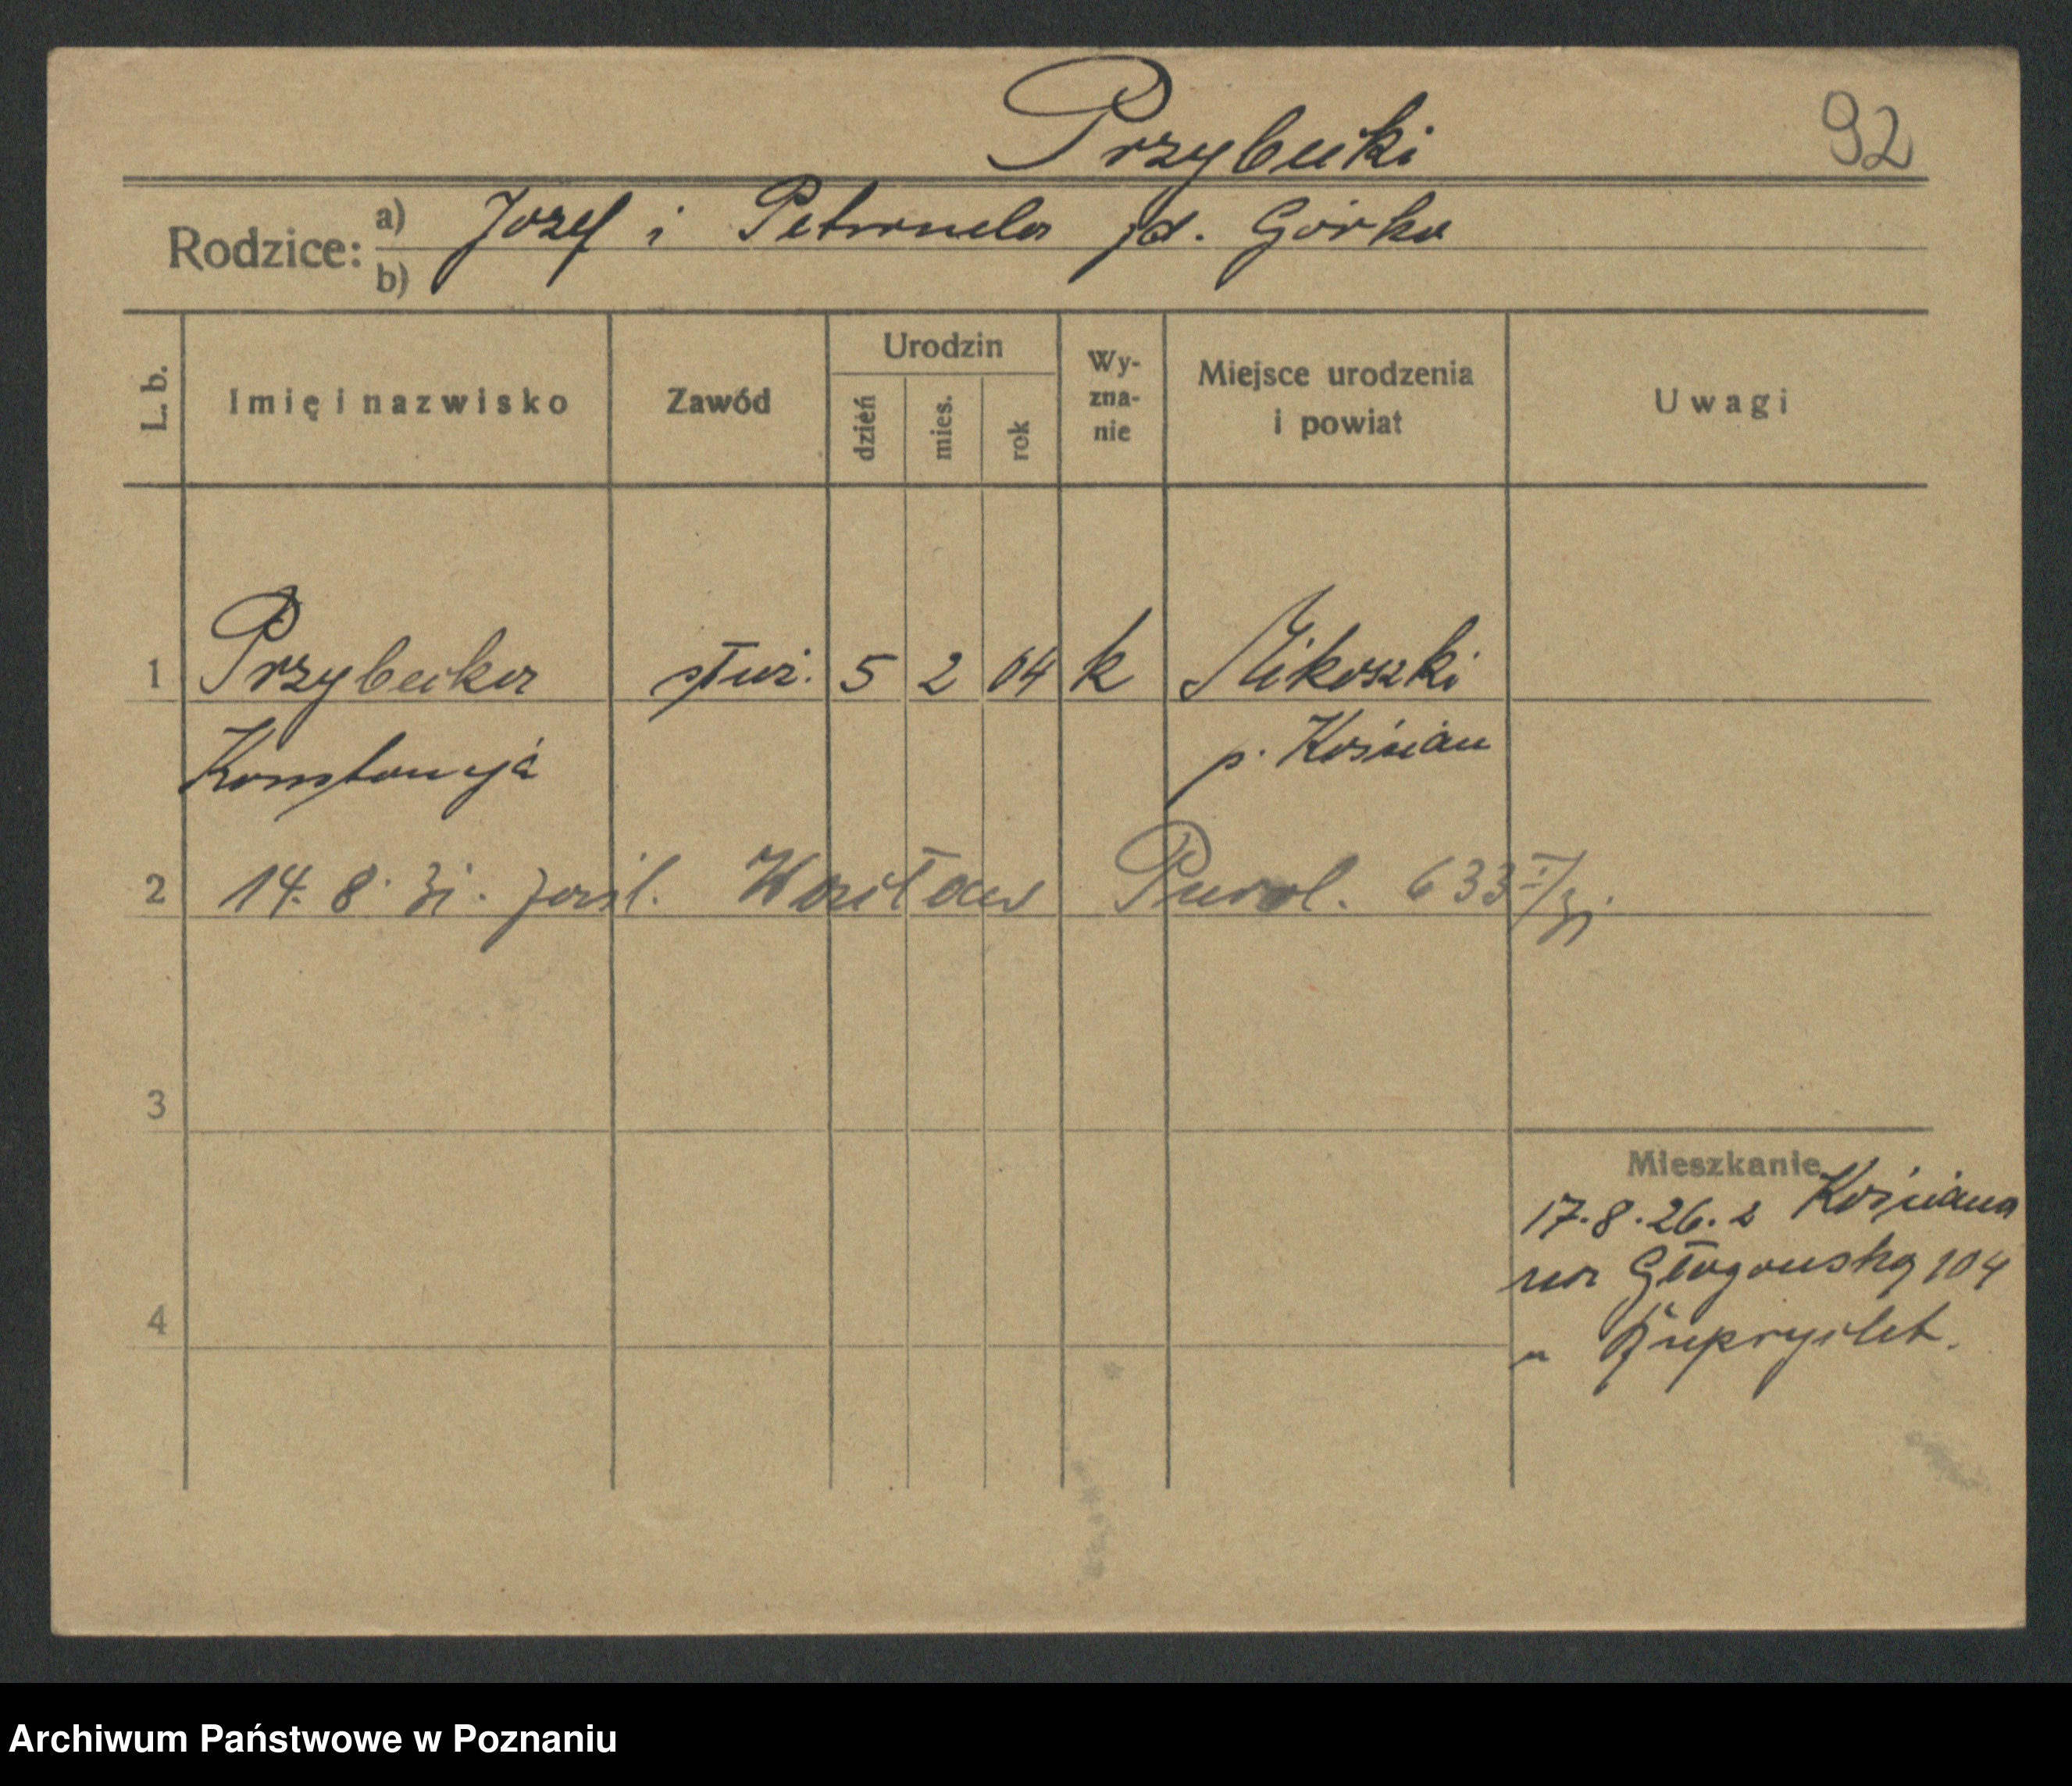 Przybecki
92
Rodzice: a) Józef i Petronela jd. Górka
b)
L. b.
Imię i nazwisko
Zawód
Urodzin
dzień
mies.
rok
Wy-
zna-
nie
Miejsce urodzenia
i powiat
Uwagi
1 Przybecka służ. 5 2 04 k Mikoszki
Konstancja p. Kościan
2 14. 8. 31. Wacław 633
3
Mieszkanie
17.8.26. z Kościana
na Głogowską 104
4
u
Archiwum Państwowe w Poznaniu